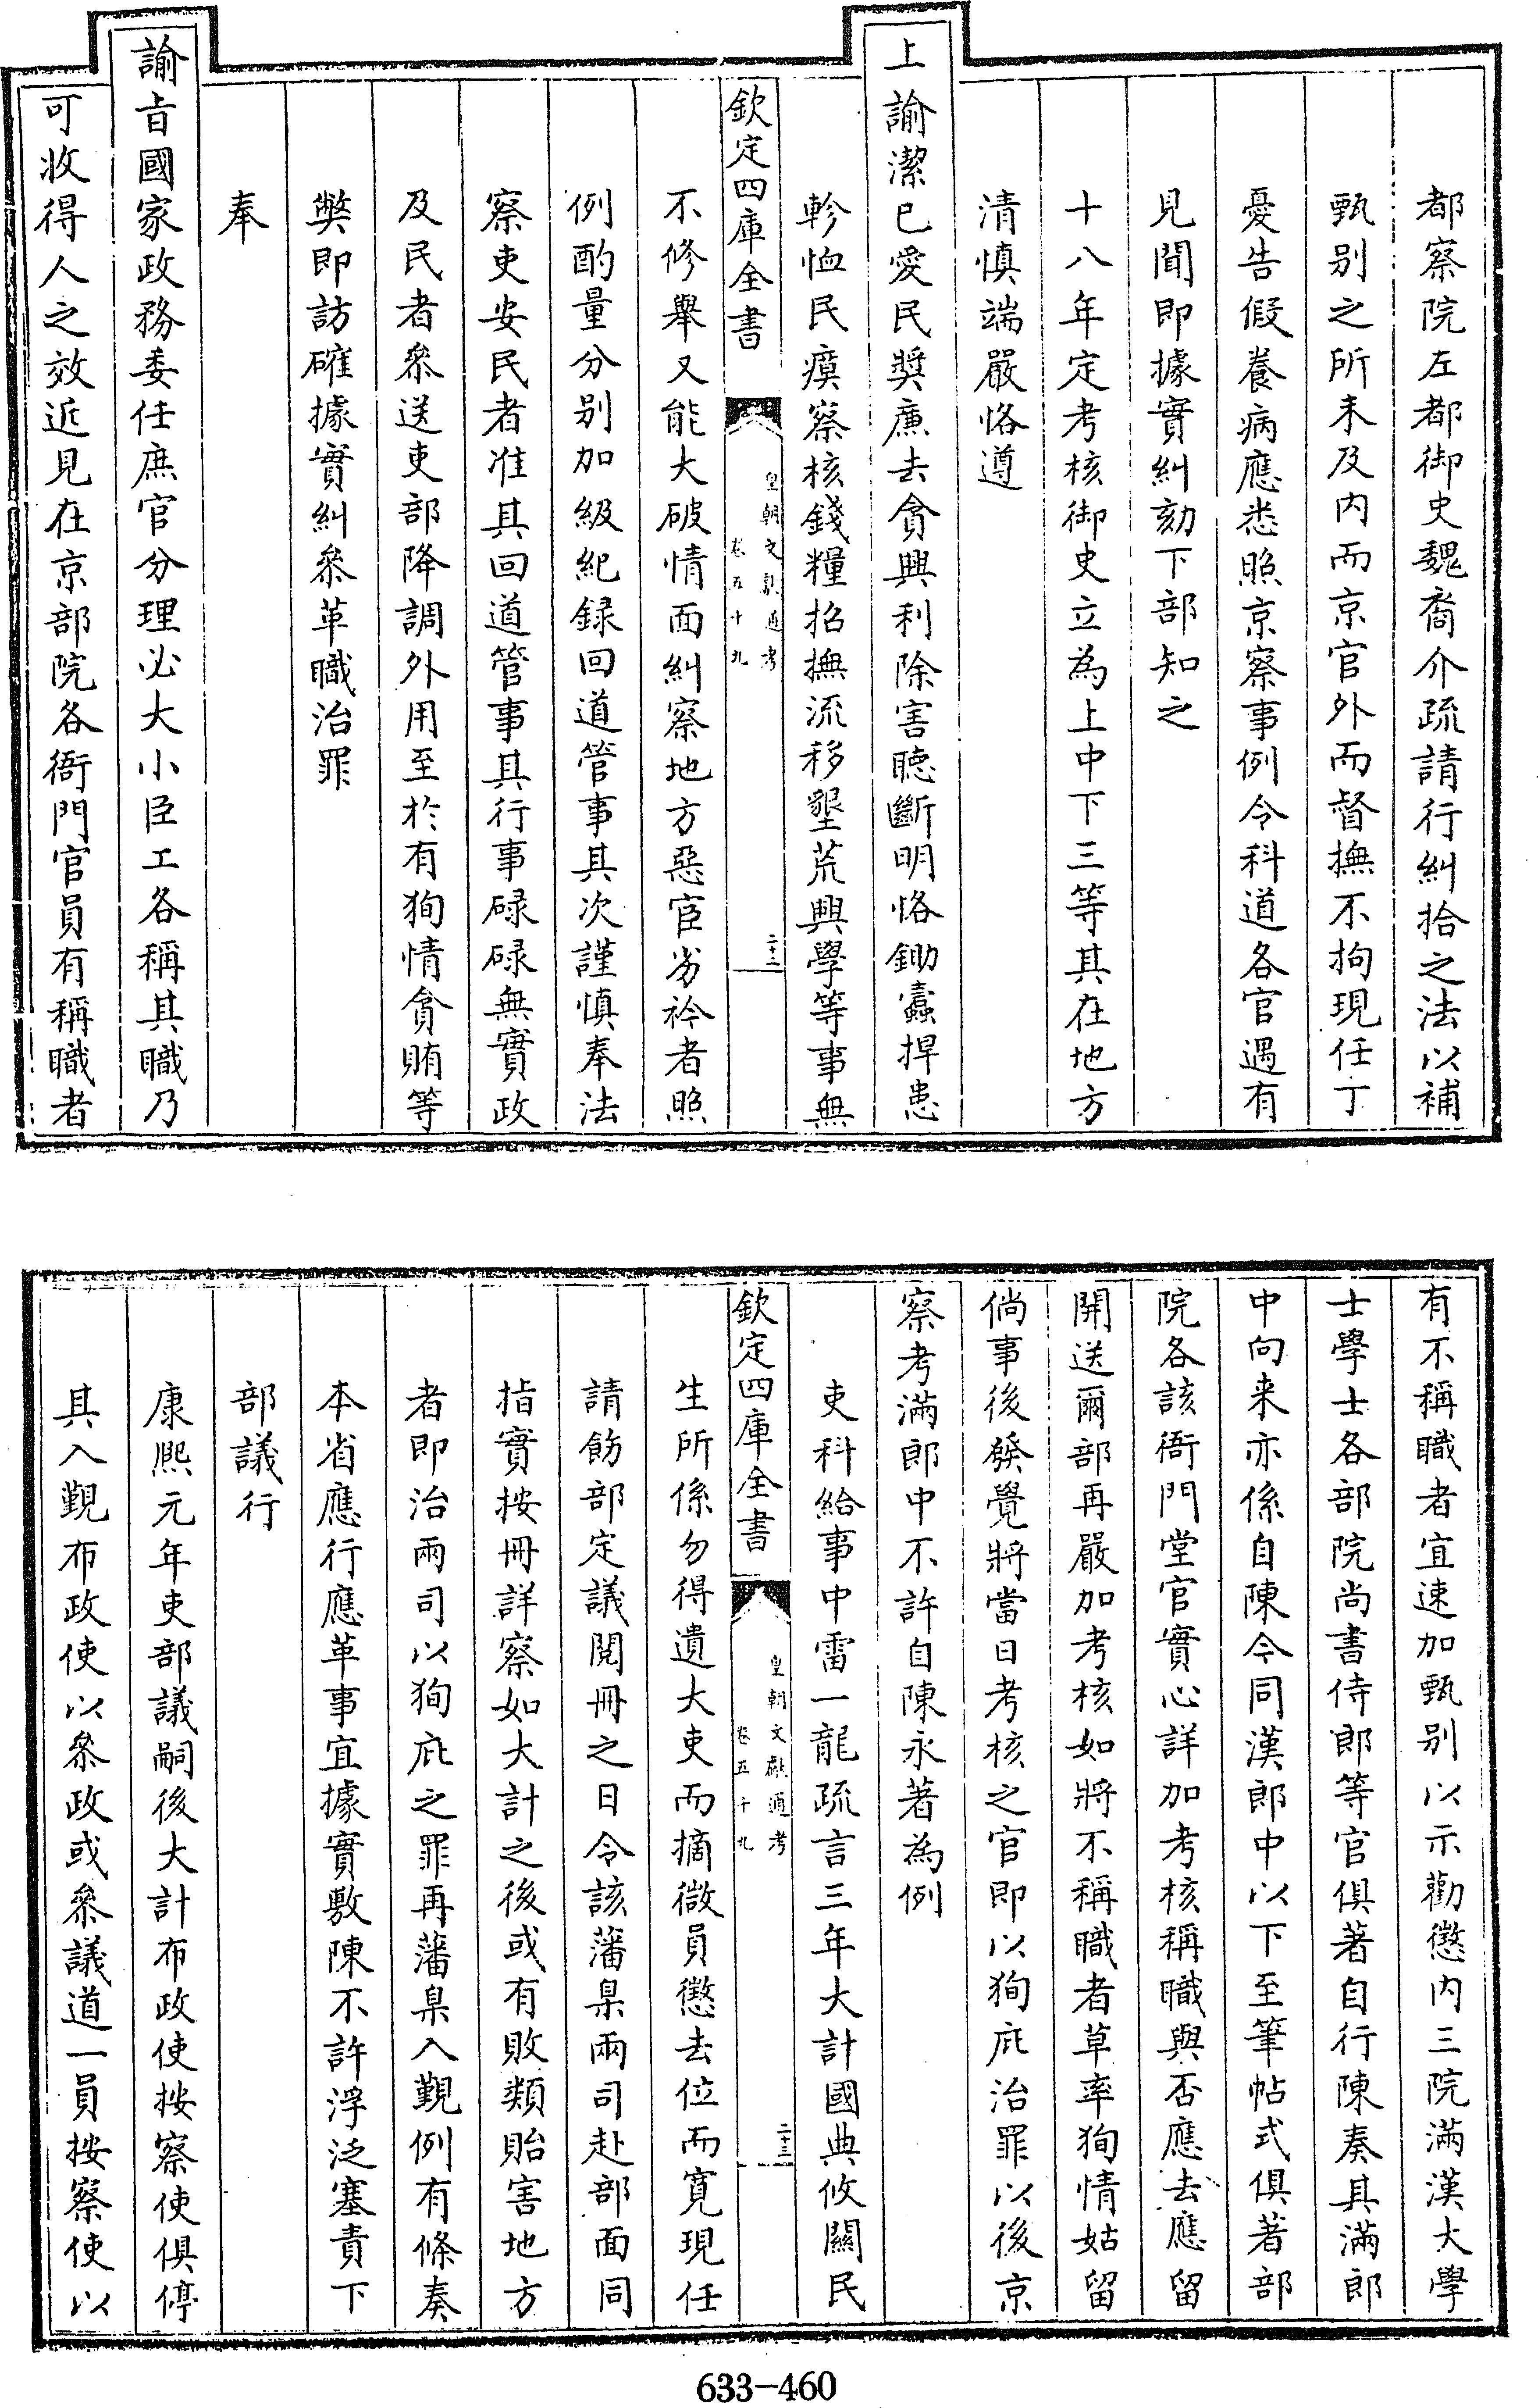 都察院左都御史魏裔介疏請行糾拾之法以補
甄别之所未及内而京官外而督撫不拘現任丁
憂告假養病應悉照京察事例令科道各官遇有
見聞即據實糾劾下部知之
十八年定考核御史立為上中下三等其在地方
清慎端嚴恪遵
上諭潔已愛民奬亷去貪興利除害聽斷明恪鋤蠧捍患
軫恤民瘼察核錢糧招撫流移墾荒興學等事無
欽定四庫全書
皇朝文獻通考
卷五十九
二十二
不修舉又能大破情面糾察地方惡宦劣衿者照
例酌量分别加級紀録回道管事其次謹慎奉法
察吏安民者准其回道管事其行事碌碌無實政
及民者叅送吏部降調外用至於有狥情貪賄等
弊即訪確據實糾叅革職治罪
奉
諭旨國家政務委任庶官分理必大小臣工各稱其職乃
可收得人之效近見在京部院各衙門官員有稱職者
有不稱職者宜速加甄别以示勸懲内三院滿漢大學
士學士各部院尚書侍郎等官俱著自行陳奏其滿郎
中向来亦係自陳今同漢郎中以下至筆帖式俱著部
院各該衙門堂官實心詳加考核稱職與否應去應留
開送爾部再嚴加考核如將不稱職者草率狥情姑留
倘事後發覺將當日考核之官即以狥庇治罪以後京
察考滿郎中不許自陳永著為例
吏科給事中雷一龍疏言三年大計國典攸關民
欽定四庫全書
皇朝文獻通考
卷五十九
二十三
生所係勿得遺大吏而摘微員懲去位而寛現任
請飭部定議閱冊之日令該藩臬兩司赴部面同
指實按冊詳察如大計之後或有敗類貽害地方
者即治兩司以狥庇之罪再藩臬入覲例有條奏
本省應行應革事宜據實敷陳不許浮泛塞責下
部議行
康熙元年吏部議嗣後大計布政使按察使俱停
其入覲布政使以叅政或叅議道一員按察使以
633-460